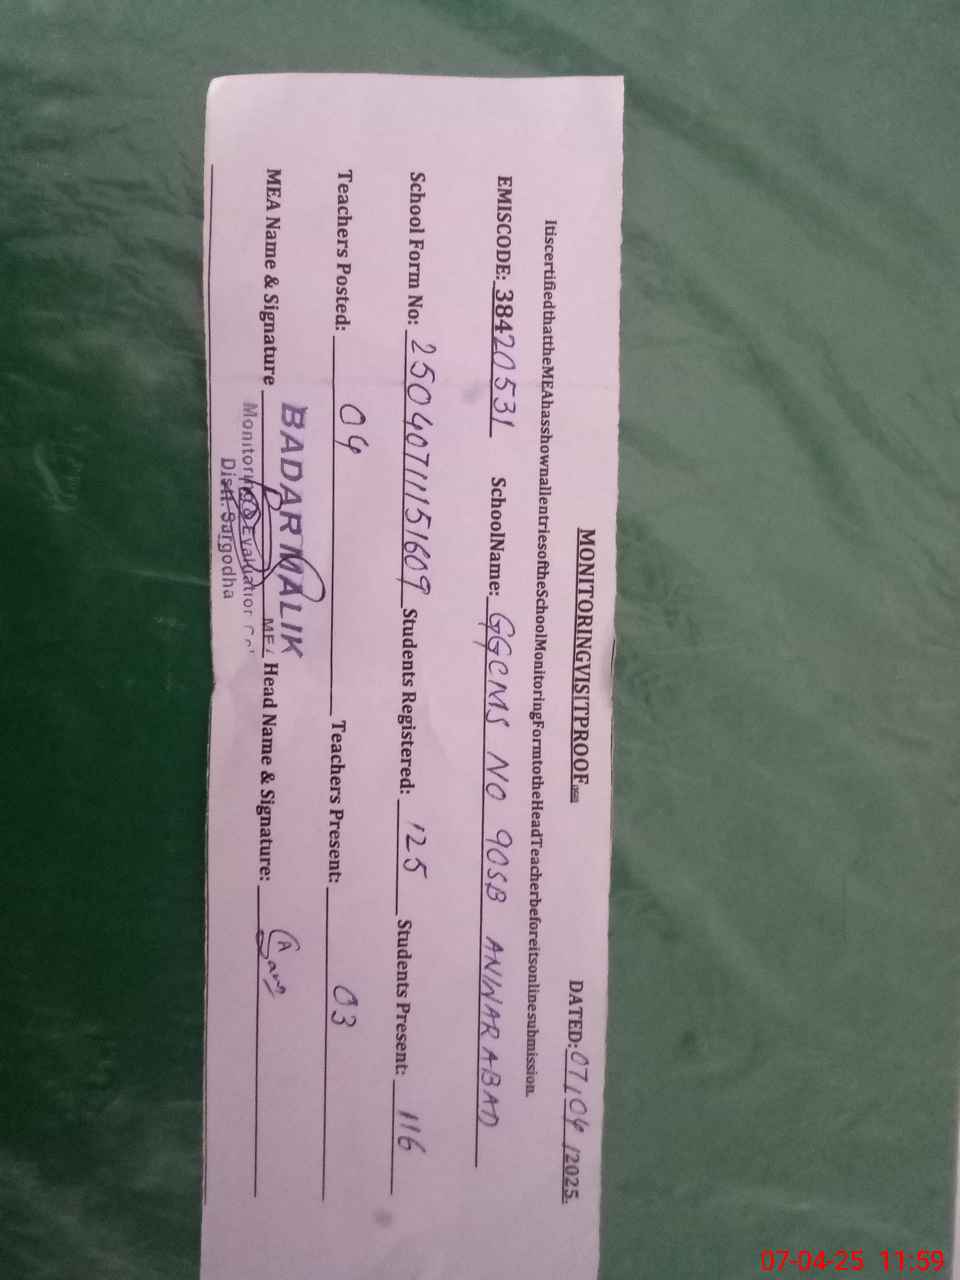 MONITORINGVISITPROOF DATED: 07/04/2025.
ItiscertifiedthattheMEAhasshownallentriesoftheSchoolMonitoringFormtotheHeadTeacherbeforeitsonlinesubmission.
EMISCODE: 38420531 SchoolName: GGCMS NO 90SB ANWAR ABAD
School Form No: 250407111151609 Students Registered: 125 Students Present: 116
Teachers Posted: 04 Teachers Present: 03
MEA Name & Signature BADAR MALIK Head Name & Signature:
Monitoring & Evaluation
Distt. Sargodha
07-04-25 11:59